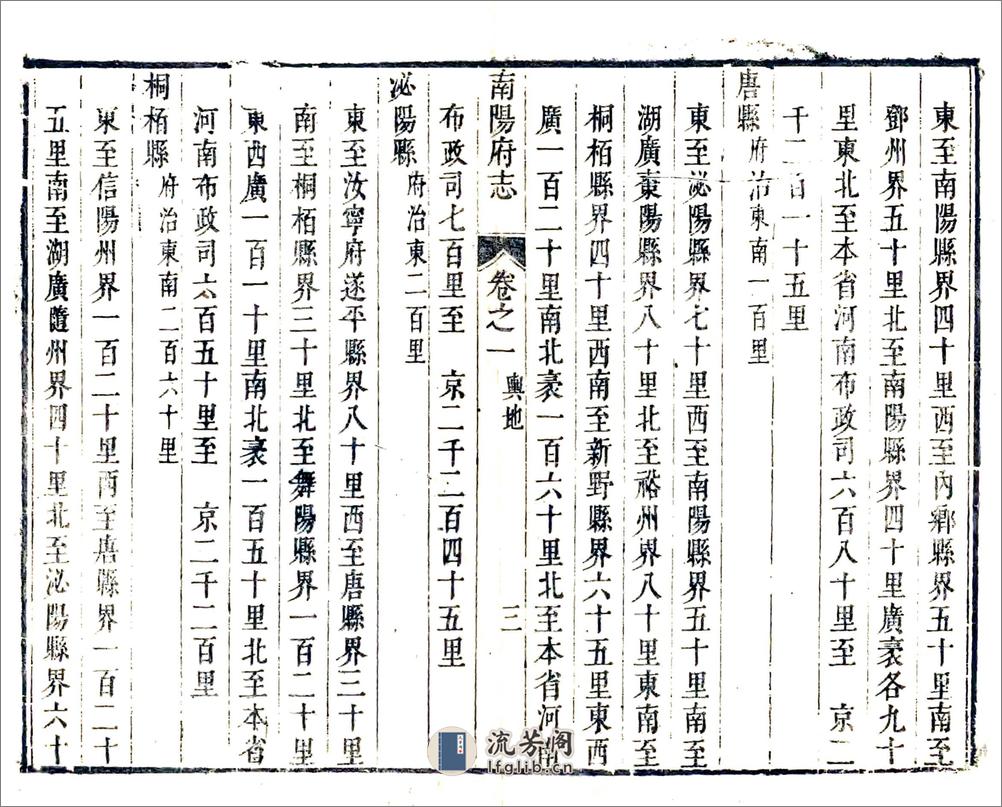 東至南陽縣界四十里西至內鄉縣界五十里南至
鄧州界五十里北至南陽縣界四十里廣袤各九十
里東北至本省河南布政司六百八十里至　京二
千二百一十五里
唐縣　府治東南一百里
東至泌陽縣界七十里西至南陽縣界五十里南至
湖廣棗陽縣界八十里北至裕州界八十里東南至
桐栢縣界四十里西南至新野縣界六十五里東西
廣一百二十里南北袤一百六十里北至本省河南
南陽府志　卷之一　輿地　三
布政司七百里至　京二千二百四十五里
泌陽縣　府治東二百里
東至汝寧府遂平縣界八十里西至唐縣界三十里
南至桐栢縣界三十里北至舞陽縣界一百二十里
東西廣一百一十里南北袤一百五十里北至本省
河南布政司六百五十里至　京二千二百里
桐栢縣　府治東南二百六十里
東至信陽州界一百二十里西至唐縣界一百二十
五里南至湖廣隨州界四十里北至泌陽縣界六十
流芳阁
lfglib.cn